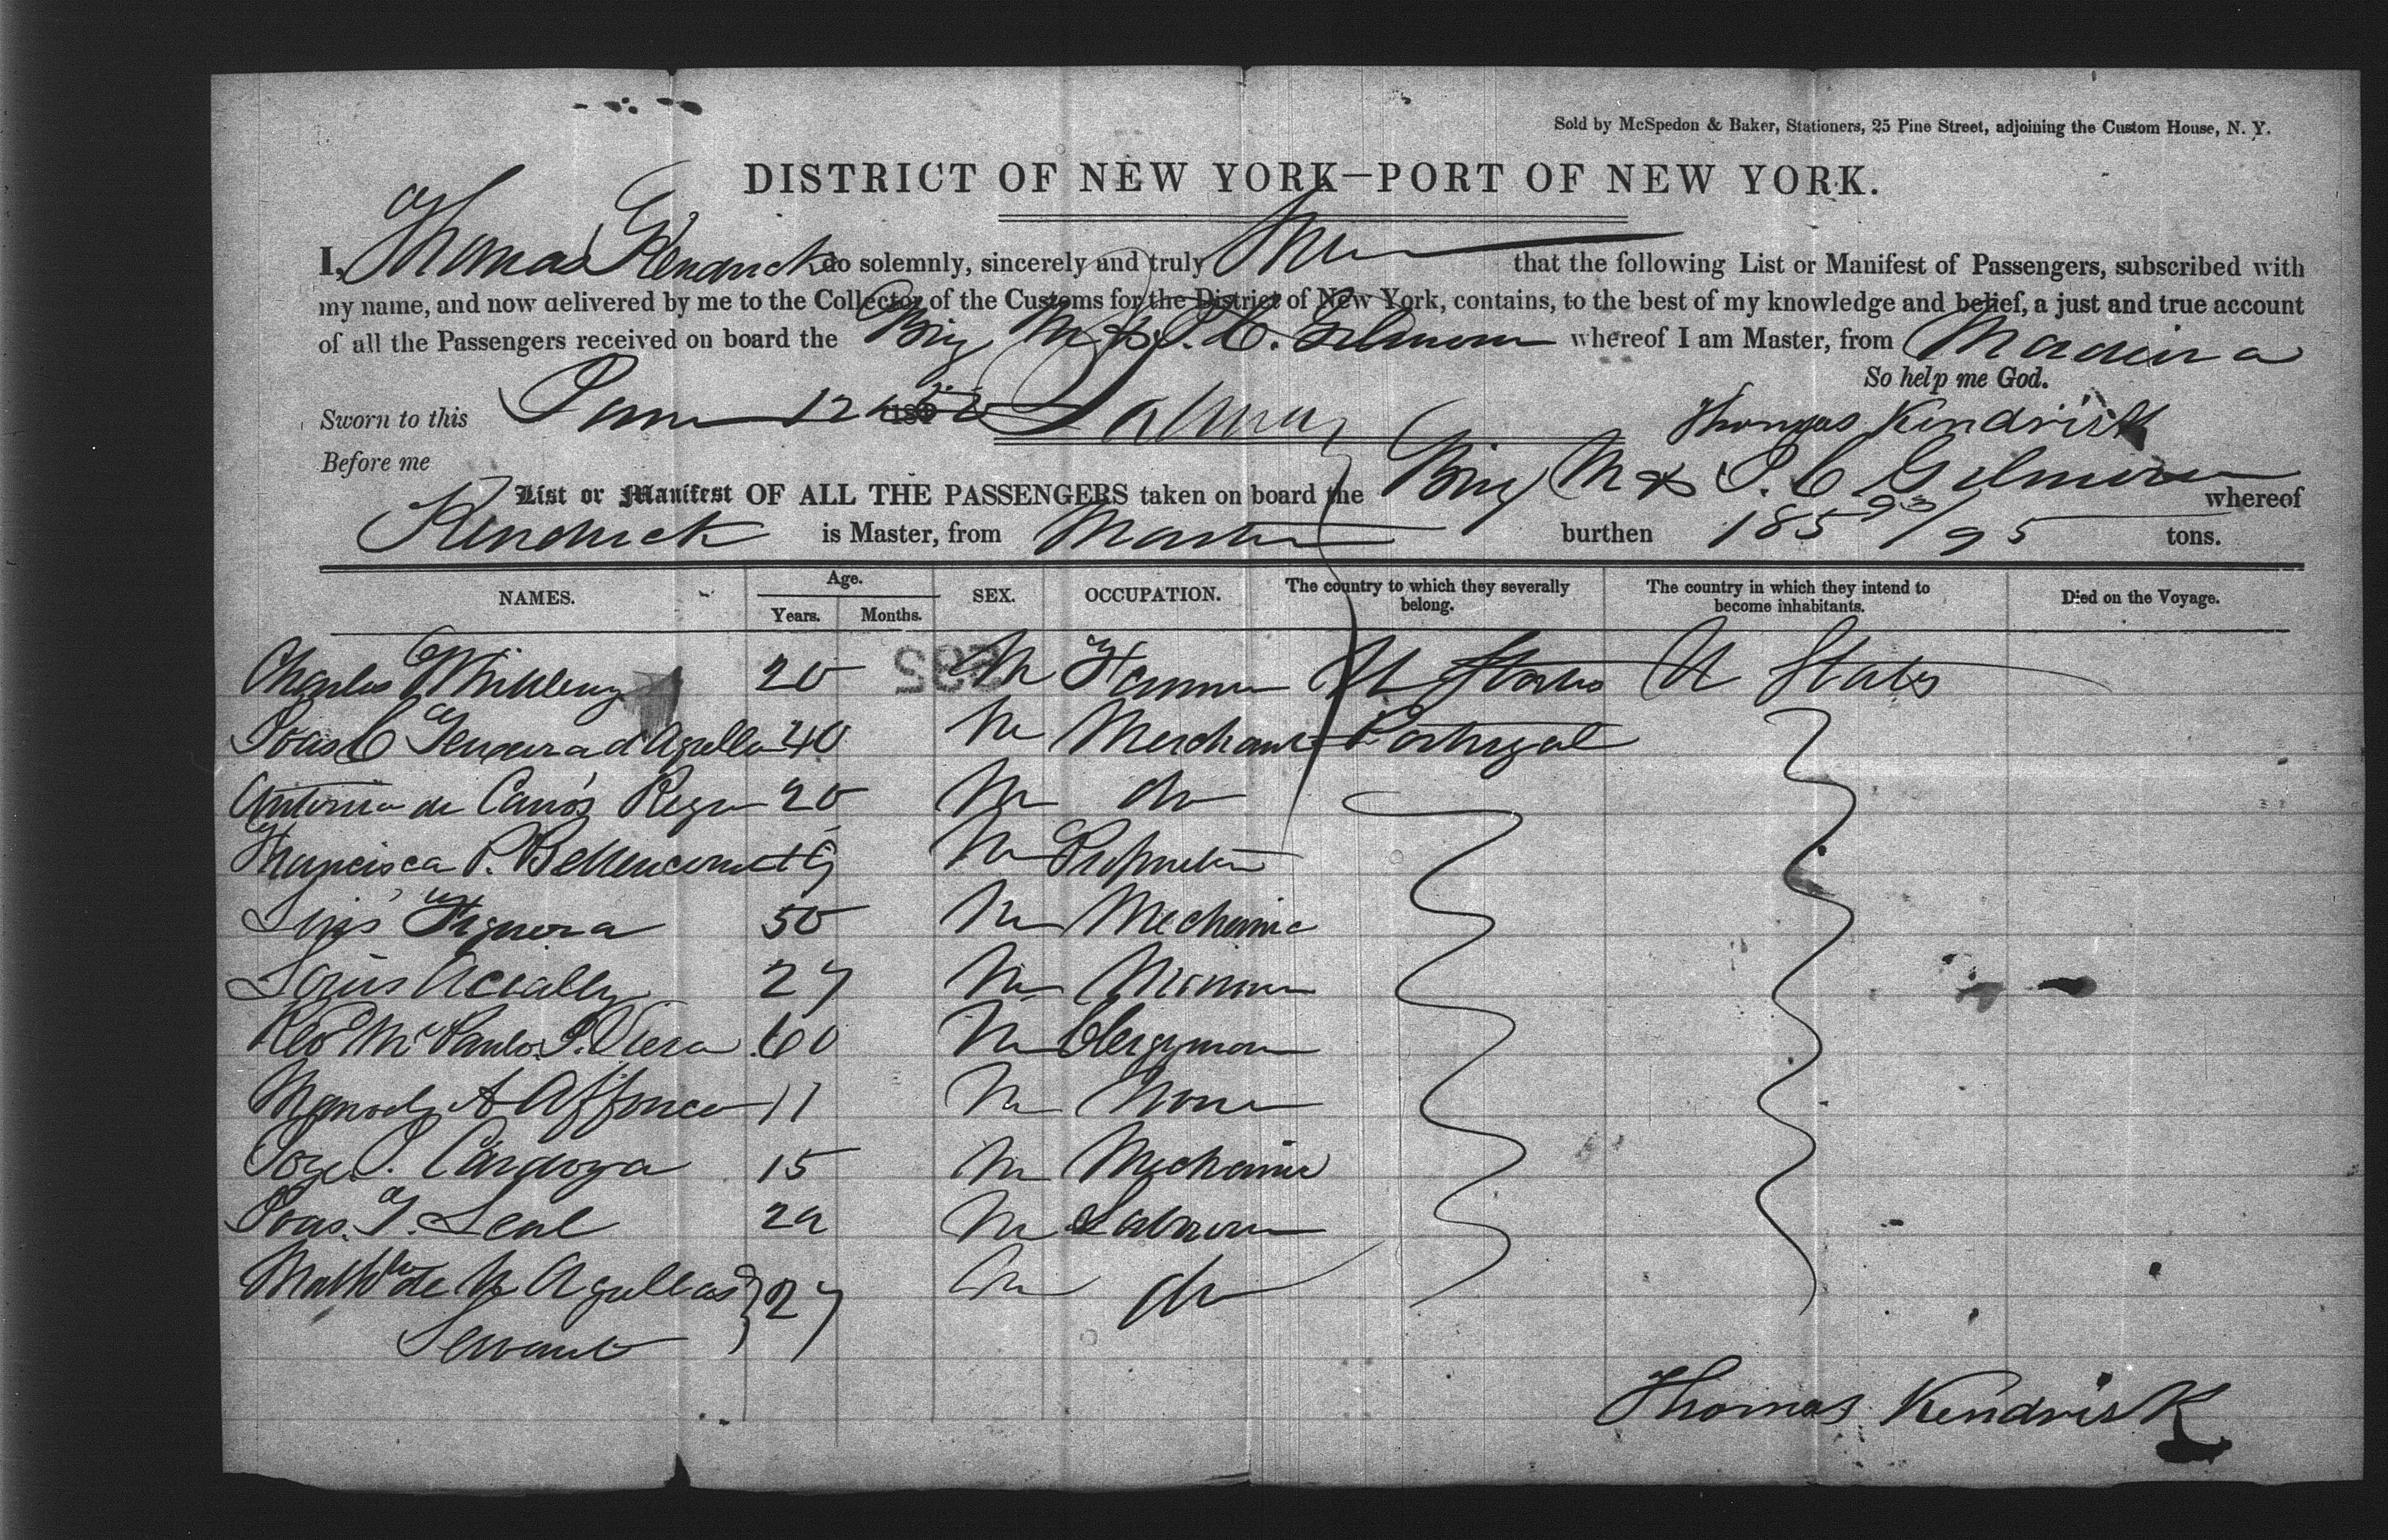 Sold by McSpedon & Baker, Stationers, 25 Pine Street, adjoining the Custom House, N. Y.
DISTRICT OF NEW YORK—PORT OF NEW YORK.
I, Thomas Kendrick do solemnly, sincerely and truly that the following List or Manifest of Passengers, subscribed with
my name, and now delivered by me to the Collector of the Customs for the District of New York, contains, to the best of my knowledge and belief, a just and true account
of all the Passengers received on board the Brig M & J. C. Gilmore whereof I am Master, from Madeira
So help me God.
Sworn to this 12 Thomas Kendrick
Before me
List or Manifest OF ALL THE PASSENGERS taken on board the Brig M & J. C Gilmore whereof
Kendrick is Master, from burthen 185 93/95 tons.
NAMES. Age. Years. Months. SEX. OCCUPATION. The country to which they severally belong. The country in which they intend to become inhabitants. Died on the Voyage.
285
Charles 20 M U States U States
40 M Merchant Portugal
Antonio de 20 M do
Francisca P. Bettencourt 19 M Proprietor
50 M Mechanic
Louis Acially 27 M
60 M Clergyman
Manoel A Affonco 11 M None
Joze J. Cardoza 15 M Mechanic
Joao. T. Leal 29 M Labourer
de 27 M do
Servant
Thomas Kendrick